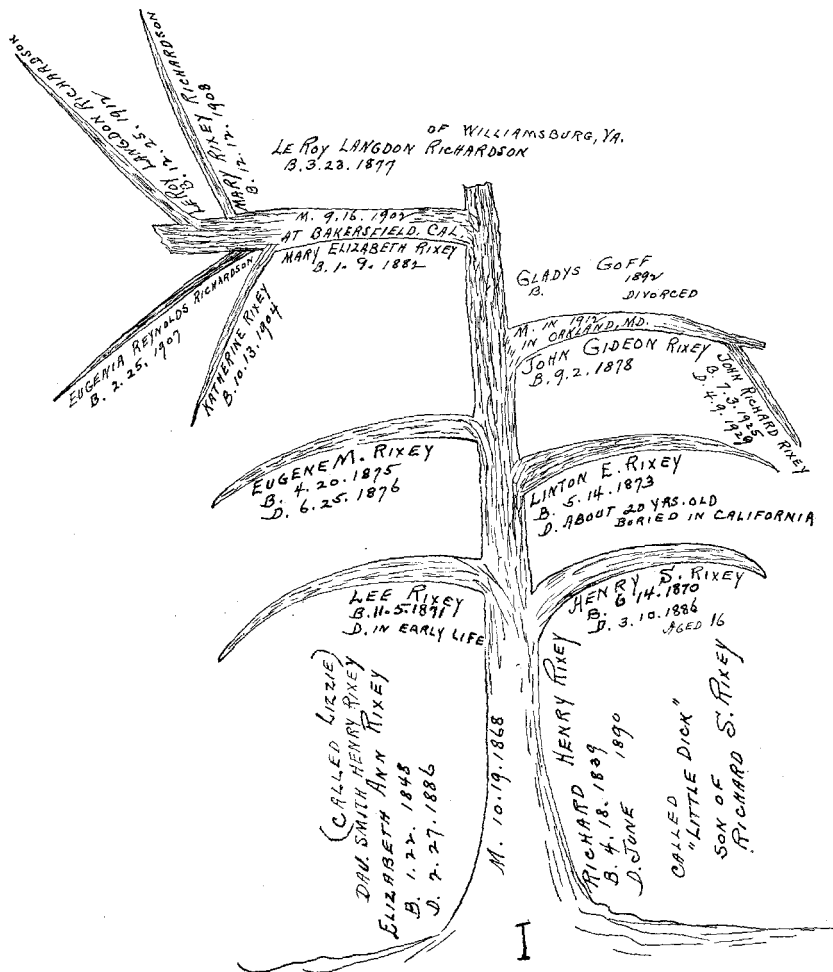 LEROY LANGDON RICHARDSON
B. 12. 25. 1912
MARY RIXEY RICHARDSON
B. 12. 12. 1908
OF WILLIAMSBURG, VA.
LE ROY LANGDON RICHARDSON
B. 3. 23. 1877
M. 9. 16. 1902
AT BAKERSFIELD, CAL.
MARY ELIZABETH RIXEY
B. 1. 9. 1882
EUGENIA REYNOLDS RICHARDSON
B. 2. 25. 1907
KATHERINE RIXEY
B. 10. 13. 1904
GLADYS GOFF
B. 1892
DIVORCED
M. IN 1912
IN OAKLAND, MD.
JOHN GIDEON RIXEY
B. 9. 2. 1878
JOHN RICHARD RIXEY
B. 7. 3. 1925
D. 4. 9. 1929
EUGENE M. RIXEY
B. 4. 20. 1875
D. 6. 25. 1876
LINTON E. RIXEY
B. 5. 14. 1873
D. ABOUT 20 YRS. OLD
BORIED IN CALIFORNIA
LEE RIXEY
B. 11. 5. 1871
D. IN EARLY LIFE
HENRY S. RIXEY
B. 6 14. 1870
D. 3. 10. 1886
AGED 16
(CALLED LIZZIE)
DAU. SMITH HENRY RIXEY
ELIZABETH ANN RIXEY
B. 1. 22. 1848
D. 2. 27. 1886
M. 10. 19. 1868
RICHARD HENRY RIXEY
B. 4. 18. 1839
D. JUNE 1890
CALLED
"LITTLE DICK"
SON OF
RICHARD S. RIXEY
I